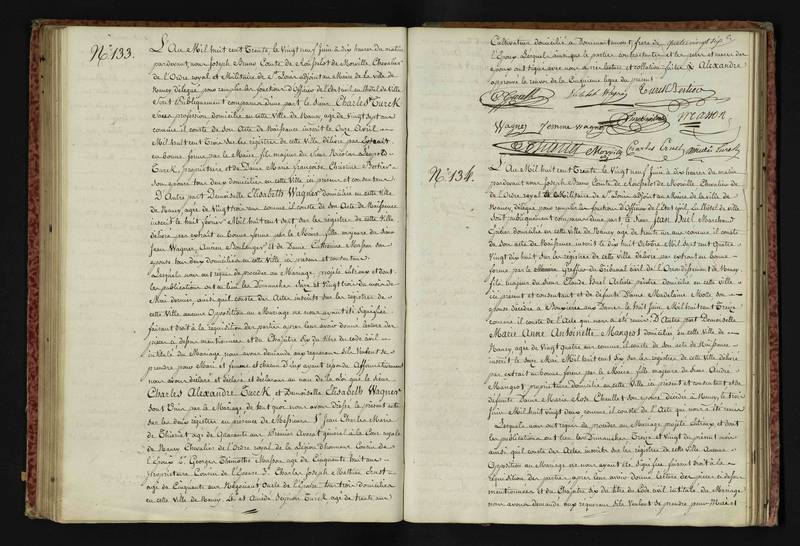 N.º 133.
L'An Mil huit cent Trente, le Vingt neuf Juin à dix heures du matin
pardevant nous Joseph Comte de Morville, Chevalier
de l'Ordre royal et Militaire de S.t Louis adjoint au Maire de la Ville de
Nancy délégué pour remplir les fonctions d'Officier de l'Etat civil en l'hôtel de Ville
Sont Publiquement comparus d'une part le Sieur Charles Turck
Sans profession, domicilié en cette Ville de Nancy, agé de Vingt sept ans
comme il conste de son Acte de Naissance inscrit le Onze Avril
Mil huit cent Trois sur les registres de cette Ville, délivré par extrait
en bonne forme par le Maire, fils majeur du Sieur Nicolas Léopold
Turck, propriétaire et de Dame Marie Françoise Christine Bertier
son épouse tous deux domiciliés en cette Ville ici présents et consentans
D'Autre part Demoiselle Elisabeth Wagner domiciliée en cette Ville
de Nancy, agée de Vingt trois ans comme il conste de son Acte de Naissance
inscrit le huit février Mil huit cent sept sur les registres de cette Ville
délivré par extrait en bonne forme par le Maire, fille majeure du Sieur
Jean Wagner, Ancien Boulanger et de Dame Catherine Masson son
épouse tous deux domiciliés en cette Ville, ici présents et consentans
Lesquels nous ont requis de procéder au Mariage projeté entr'eux et dont
les publications ont eu lieu les Dimanches Seize et Vingt trois du mois de
Mai dernier, ainsi qu'il conste des Actes inscrits sur les registres de
cette Ville aucune Opposition au Mariage ne nous ayant été Signifiée
faisant droit à la réquisition des parties après leur avoir donné lecture des
pièces ci dessus mentionnées et du Chapitre Six du titre du Code civil
intitulé du Mariage nous avons demandé aux requérans s'ils Veulent se
prendre pour Mari et femme et chacun d'eux ayant répondu Affirmativement
nous avons déclaré et déclarons au nom de la loi que le Sieur
Charles Alexandre Turck et Demoiselle Elisabeth Wagner
sont Unis par le Mariage de tout quoi nous avons dressé le présent acte
sur les deux registres en présence de Messieurs 1.º Jean Charles Marie
de Thiériet agé de Quarante ans Premier Avocat général à la Cour royale
de Nancy Chevalier de l'Ordre royal de la Légion d'honneur Cousin de
l'Epoux 2.º Georges Masson agé de Cinquante huit ans
propriétaire Cousin de l'Epouse 3.º Charles Joseph Mathieu Ernst
agé de Cinquante ans Négociant Oncle de l'Epouse tous trois domiciliés
en cette Ville de Nancy, Et 4.º Amédé Turck agé de trente ans
Cultivateur domicilié à Dommartemont frère de
l'Epoux Lesquels ainsi que les parties contractantes et les pères et mères des
époux ont signé avec nous après lecture et collation faites Alexandre
approuvé le renvoi de la Cinquième ligne du présent
C Turck Elisabeth Wagner Turck Bertier
Wagner femme Wagner Masson
Thiériet Morville Charles Ernst Amédée Turck
N.º 134.
L'An Mil huit cent Trente le Vingt neuf Juin à dix heures du matin
pardevant nous Joseph Comte de Morville Chevalier de
l'Ordre royal et Militaire de S.t Louis adjoint au Maire de la Ville de
Nancy délégué pour remplir les fonctions d'Officier de l'Etat civil en l'hôtel de Ville
sont publiquement comparus d'une part le Sieur Jean Huel Marchand
Epicier domicilié en cette Ville de Nancy agé de trente un ans comme il conste
de son acte de Naissance inscrit le dix huit Octobre Mil Sept cent Quatre
Vingt dix huit sur les registres de cette Ville délivré par extrait en bonne
forme par le Greffier du Tribunal civil de l'Arrondissement de Nancy
fils majeur du Sieur Claude Huel Artiste peintre domicilié en cette Ville
ici présent et consentant et de défunte Dame Madeleine son
épouse décédée à Dame le huit Juin Mil huit cent Treize
comme il conste de l'acte qui nous a été remis D'Autre part Demoiselle
Marie Anne Antoinette Mangeot domiciliée en cette Ville de
Nancy agée de Vingt Quatre ans comme il conste de son acte de Naissance
inscrit le Mai Mil huit cent Six sur les registres de cette Ville délivré
par extrait en bonne forme par le Maire fille majeure du Sieur André
Mangeot propriétaire domicilié en cette Ville ici présent et consentant et de
défunte Dame Marie Rose son épouse décédée à Nancy, le trois
Juin Mil huit cent Vingt deux comme il conste de l'acte qui nous a été remis
Lesquels nous ont requis de procéder au Mariage projeté entr'eux et dont
les publications ont eu lieu les Dimanches Treize et Vingt du présent mois
ainsi qu'il conste des Actes inscrits sur les registres de cette Ville Aucune
Opposition au Mariage ne nous ayant été Signifiée faisant droit à la
réquisition des parties après leur avoir donné lecture des pièces ci dessus
mentionnées et du Chapitre Six du titre du Code civil intitulé du Mariage
nous avons demandé aux requérans s'ils Veulent se prendre pour Mari et